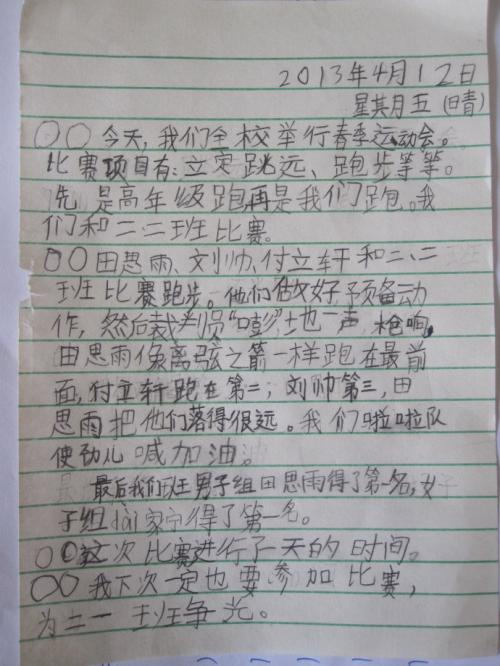 2013年4月12日
星期五(晴)
〇〇今天,我们全校举行春季运动会。
比赛项目有:立定跳远、跑步等等。
先是高年级跑再是我们跑。我
们和二、二班比赛。
〇〇田思雨、刘帅、付立轩和二、二
班比赛跑步。他们做好预备动
作,然后裁判员“嘭”地一声,枪响,
田思雨像离弦之箭一样跑在最前
面,付立轩跑在第二,刘帅第三,田
思雨把他们落得很远。我们啦啦队
使劲儿喊加油。
最后我们班男子组田思雨得了第一名,女
子组 家宁得了第一名。
〇〇这次比赛进行了一天的时间。
〇〇我下次一定也要参加比赛,
为二一班争光。